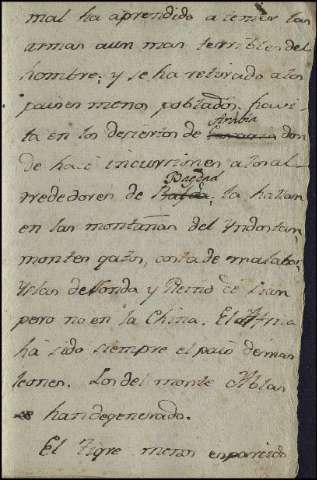 mal ha aprendido a temer las
armas aun mas terribles del
hombre; y se ha retirado a los
paises menos poblados, havi-
ta en los desiertos de Arabia don
de hace incursiones a los al
rrededores de Bagdad
Bagdad. la hallan
en las montañas del Yndostan,
montes gates, costa de malabar,
Yslas de Sonda y Reino de Sian
pero no en la China. El Africa
ha sido siempre el pais de mas
leones. Los del monte Atlas
han degenerado.
El Tigre menos esparcido